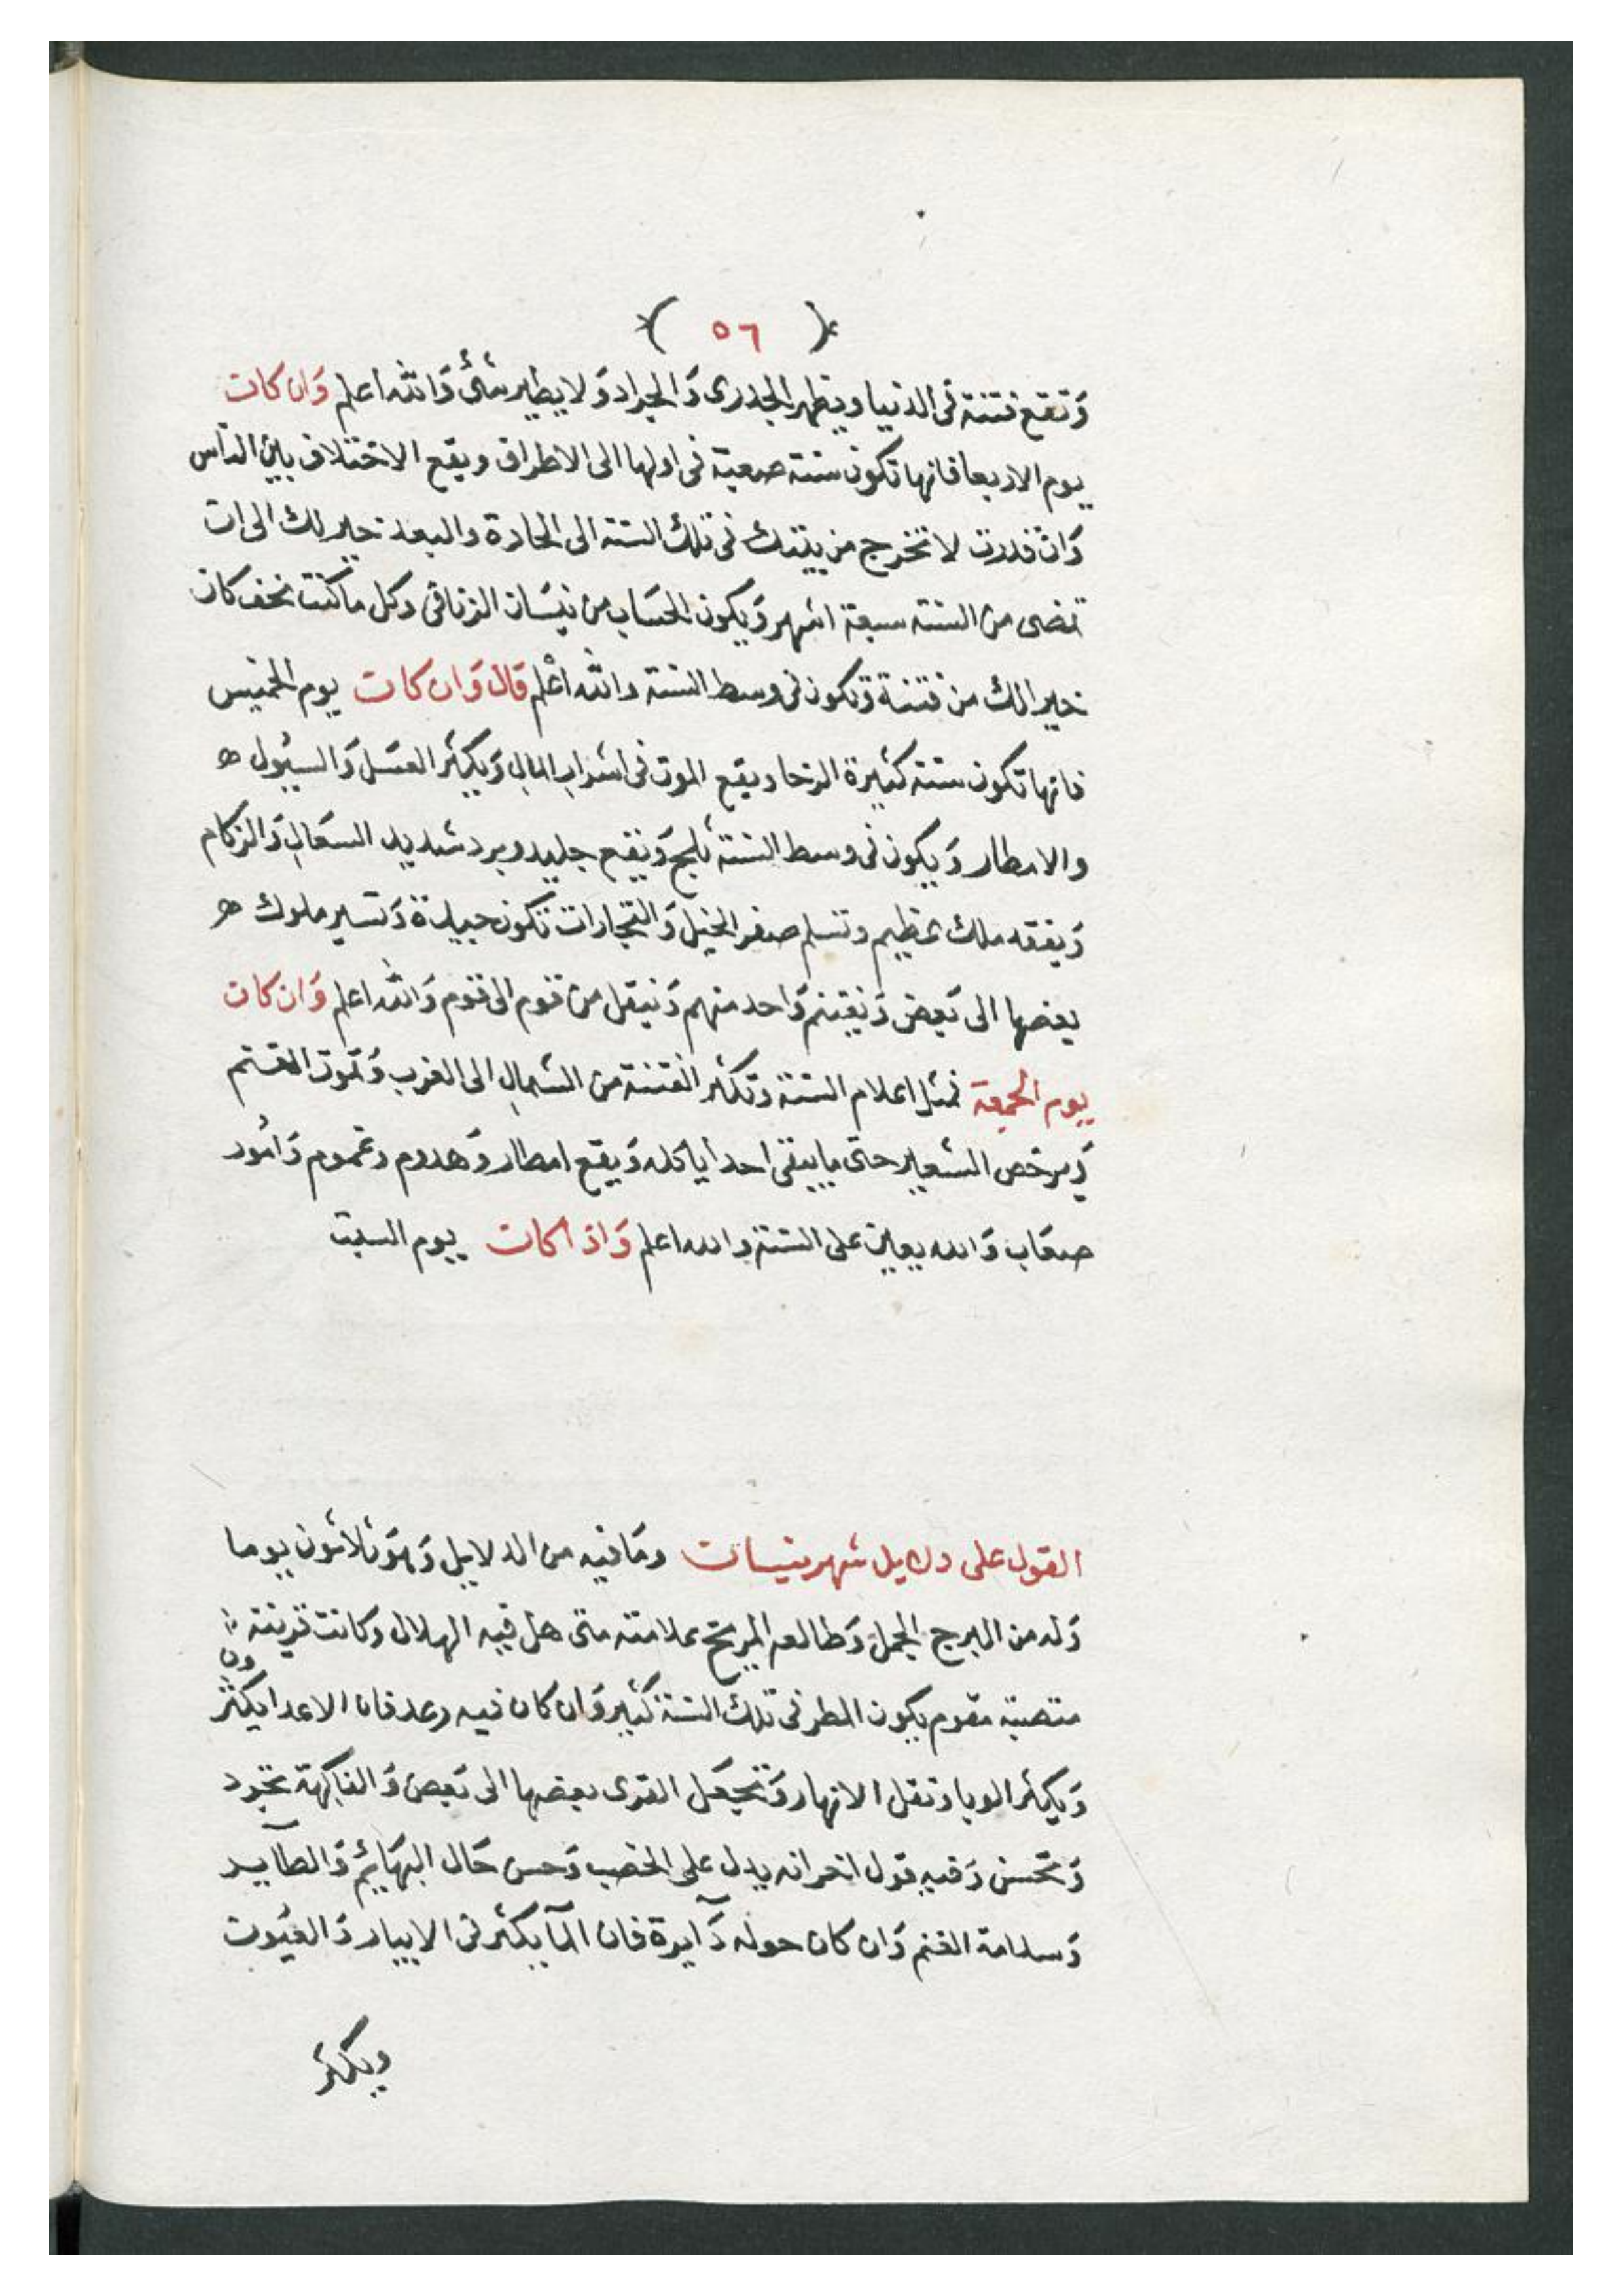 ( ٥٦ )
وَتقع فتنة فى الدنيا ويظهر الجدرى وَالجراد وَلا يطير شئ وَالله اعلم وَان كانت
يوم الاربعا فانها تكون سنة صعبة فى اولها الى الاطراف ويقع الاختلاف بين الناس
وَان قدرت لا تخرج من بيتك فى تلك السنة الى الحادة والبعد خير لك الى ان
تمضى من السنة سبعة اشهر وَيكون الحسَاب من نيسَان الزناقى وكل ما كنت نخف كان
خير الك من فتنة وَتكون فى وسط السنة والله اعْلم قال وَان كانت يوم الخميس
فانها تكون سنة كثيرة الرخا ويقع الموت فى اشراب المال وَيكثر العسَل وَالسيُول ه
والامطار وَيكون فى وسط السنة ثلج وَيقع جليد وبرد شديد السعَال وَالزكام
وَيفقد ملك عظيم وتسلم صفر الخيل وَالتجارات تكون جيدة وَتسير ملوك ه
بعضها الى بَعض وَيفتنم وَاحد منهم وَنيقل من قوم الى قوم وَالله اعلم وَان كانت
يوم الجمعة فمثل اعلام السنة وَتكثر الفتنة من الشمال الى الغرب وَتموت الغنم
وَيرخص الشعير حتى ما يبقى احد ايا كله وَيقع امطار وَهدوم وغموم وَامُور
صعَاب وَالله يعين على السنة والله اعلم وَاذا كانت يوم السبت
القول على دلايل شهر نيسات ومَا فيه من الدلايل وَهوَ ثلاثون يوما
وَله من البرج الجمل وَطالعه المريخ علامته متى هل فيه الهلال وكانت قرينته
منتصبة مقوم يكون المطر فى تلك السنة كثير وَان كان فيه رعد فان الاعدا يكثرون
وَيكثر الوبا وتقل الانهار وَتجعَل القرى بعضها الى بَعض وَالفاكهة تجود
وَتحسن وَفيه قول اخر انه يدل على الخصب وَحسن حَال البهَائم وَالصآيد
وَسلامة الغنم وَان كان حوله دَآيرة فان المآ يكثر فى الابيار وَالعيُون
ويكثر